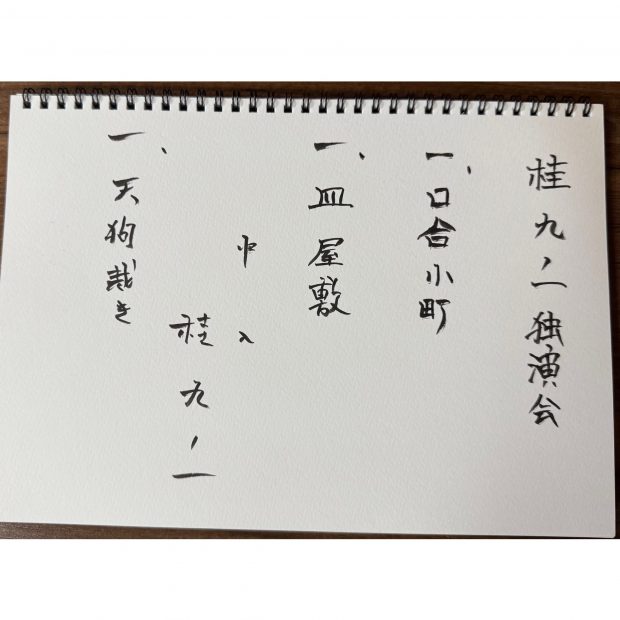 桂九ノ一独演会
一、口合小町
一、皿屋敷
中入
桂九ノ一
一、天狗裁き